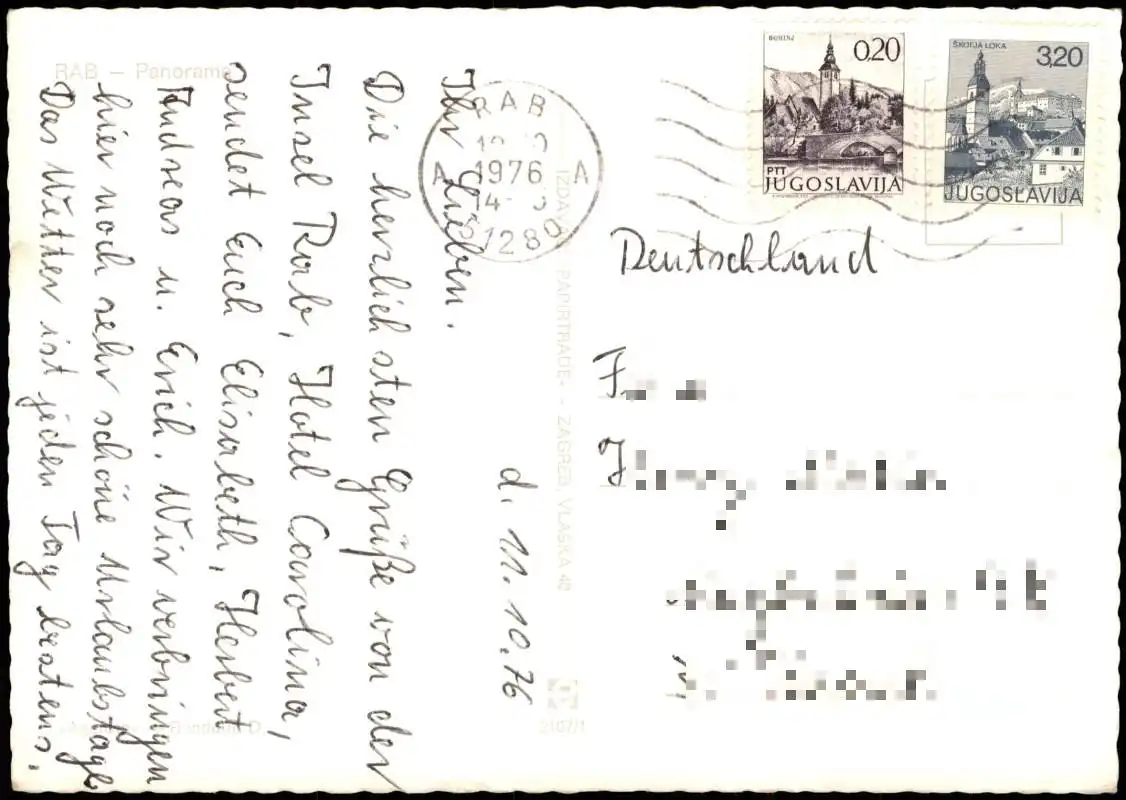 RAB – Panorama
d. 11.10.76
Ihr Lieben.
Die herzlichsten Grüße von der
Insel Rab, Hotel Carolina,
sendet Euch Elisabeth, Herbert
Andreas u. Erich. Wir verbringen
hier noch sehr schöne Urlaubstage
Das Wetter ist jeden Tag bestens.
IZDAVAČ PAPIRTRADE - ZAGREB, VLAŠKA 40
2107/1
RAB
1976
A A
51280
BOHINJ
0,20
PTT
JUGOSLAVIJA
ŠKOFJA LOKA
3,20
JUGOSLAVIJA
Deutschland